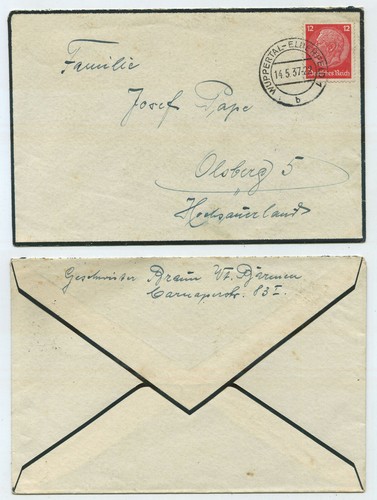 Familie
Josef Pape
Olsberg 5
Hochsauerland
12 12
Deutsches Reich
WUPPERTAL-ELBERFELD 1
14.5.37
b
Geschwister Braun Wt. Barmen
Carnaperstr. 83 I.